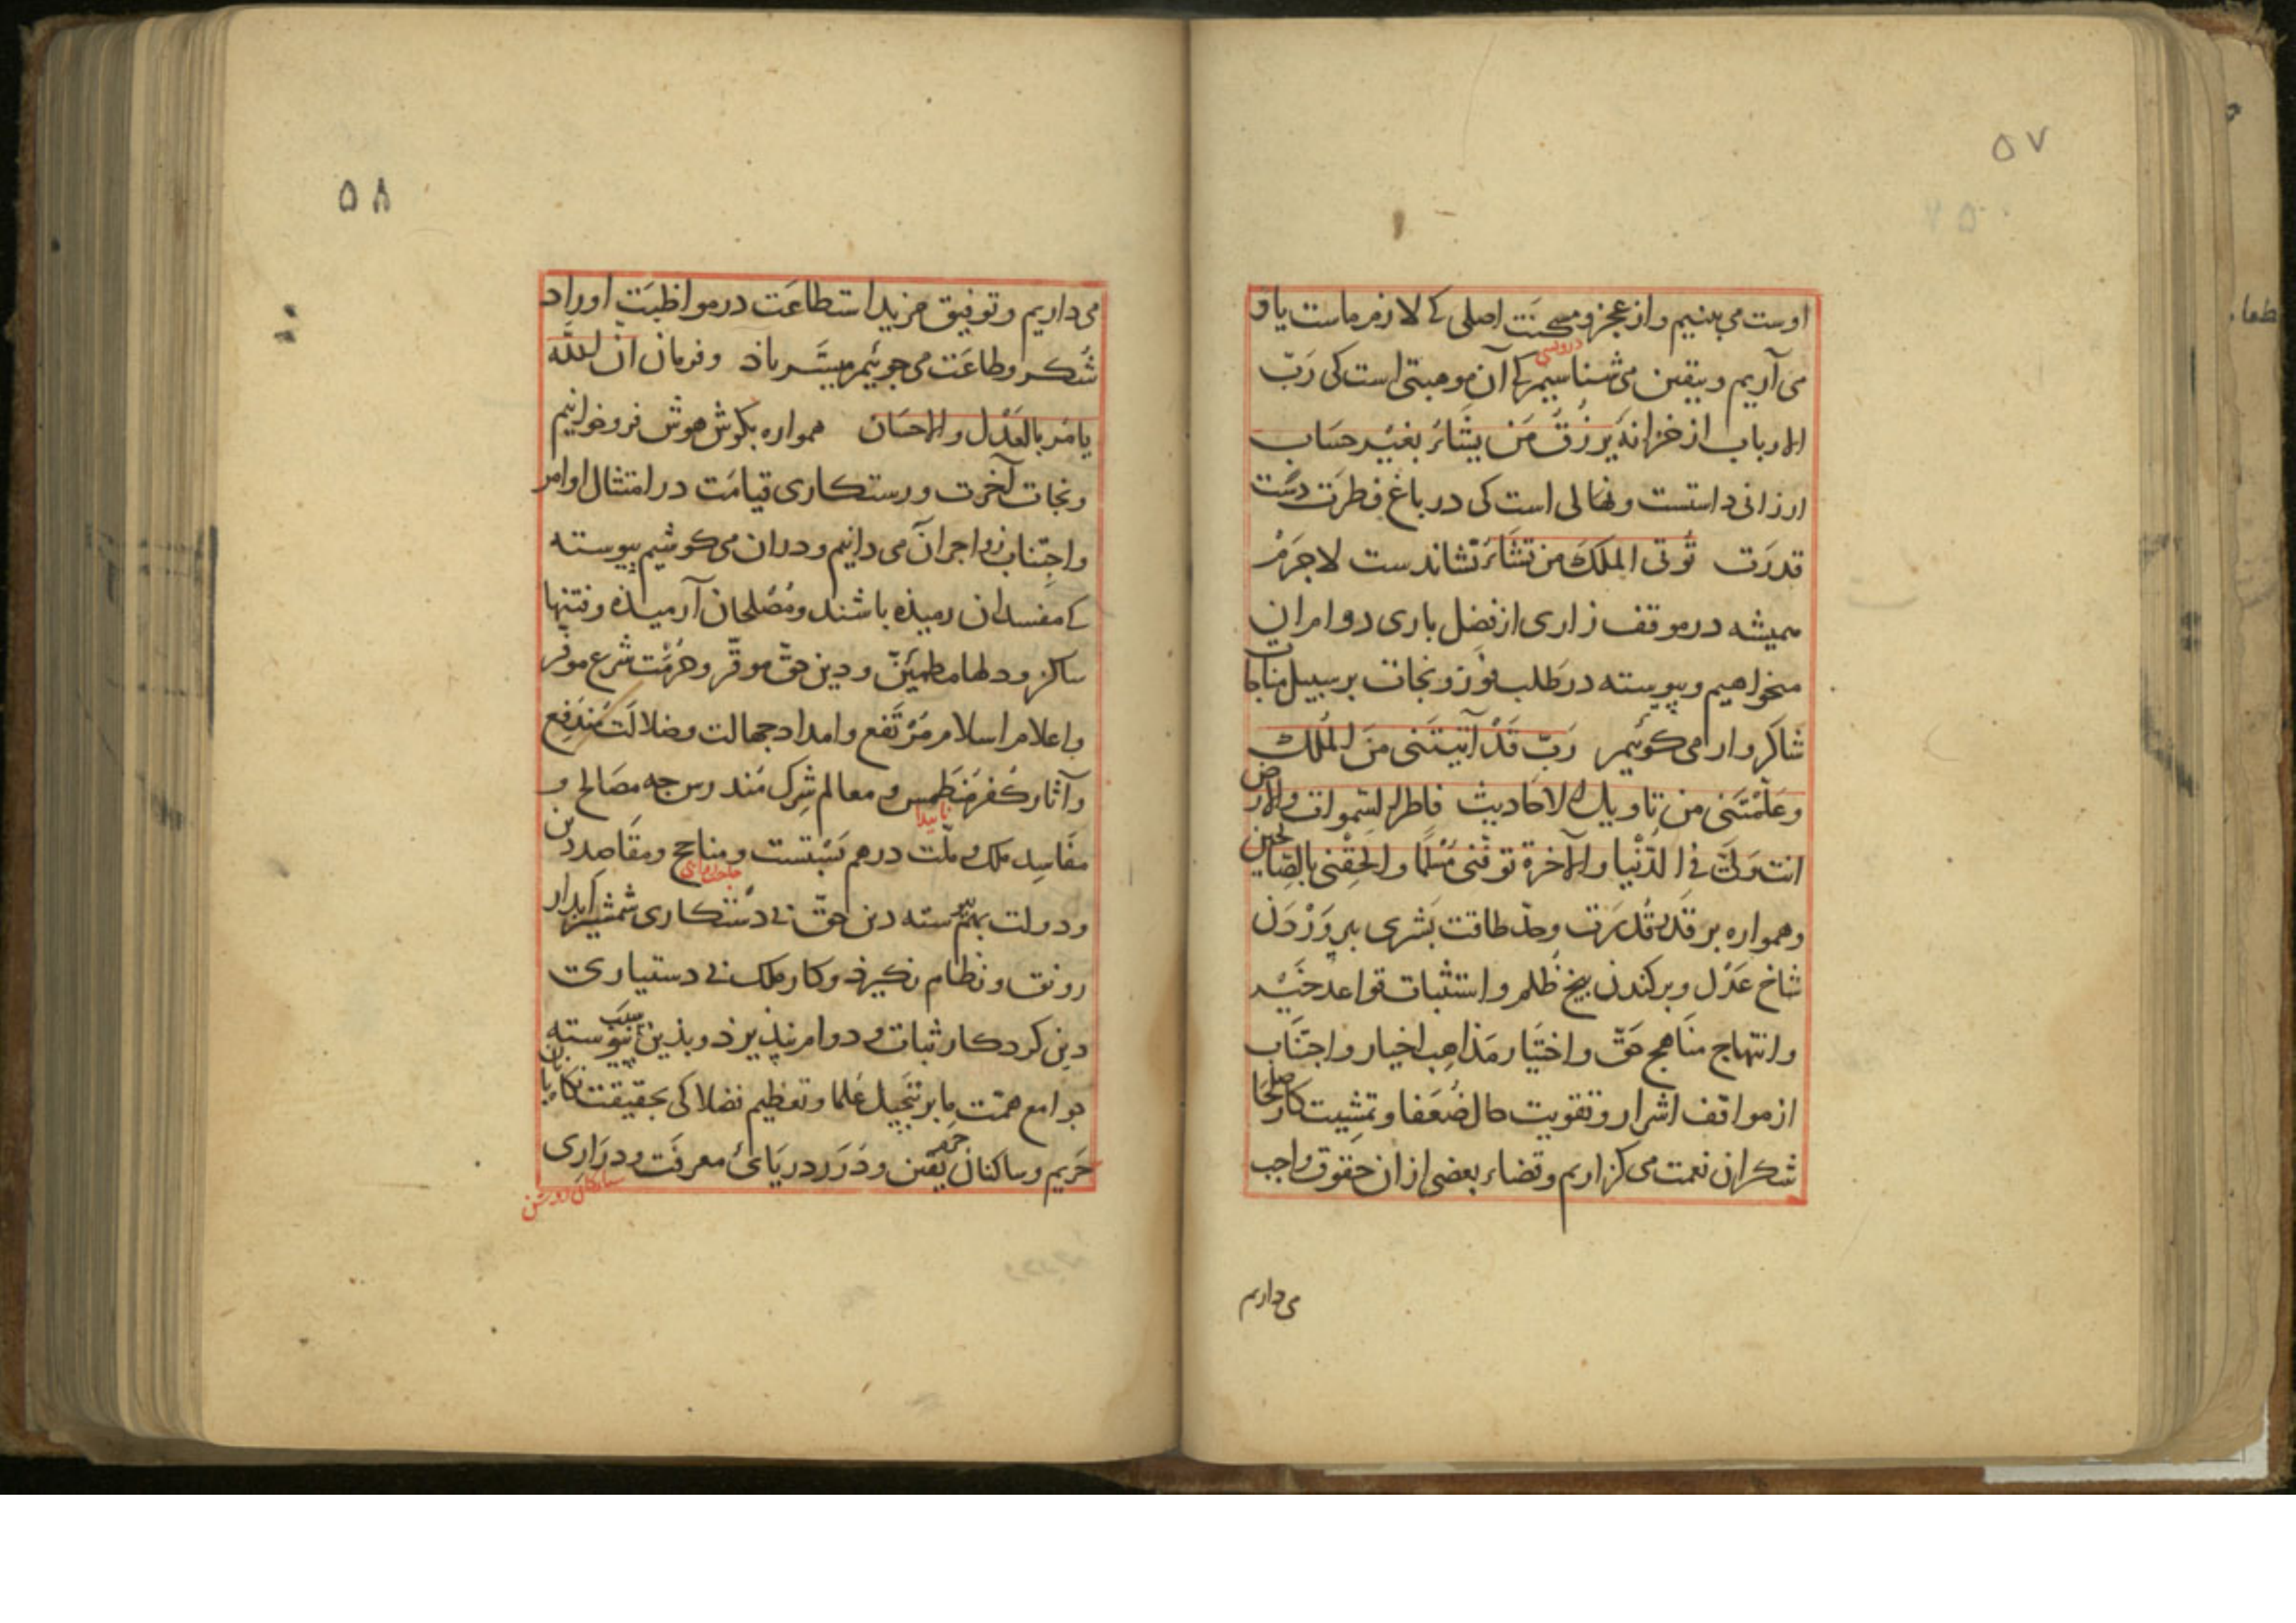 ۵۷
اوست می بینیم و از عجز و مسکنت اصلی که لازم ماست یاد
درویشی
می آریم و بیقین می شناسیم که آن موهبتی است کی رَبّ
الارباب از خزانهٔ یَرزُقُ مَن یشَاءُ بغیر حسَاب
ارزانی داستست و نهالی است کی در باغ فطرَت دست
قدرَت تُوتی الملکَ من تشَاءُ نشاندست لاجَرَمْ
همیشه در موقف زاری از فضل باری دوام آن
میخواهیم و پیوسته در طلب فوز و نجات بر سبیل مناجات
شاکروار می کوئیم رَبّ قَدْ آتیتَنی منَ المُلک
وعَلّمْتَنی من تاویل الاحادیث فاطر السّموات والارض
انت ولیّ فی الدّنْیا والآخرة توفّنی مُسْلمًا والحِقْنی بالصّالحین
وهمواره بر قدر قُدرَت وحدّ طاقت بَشَری بپروَرْدَن
شاخ عَدْل و برکندن بیخ ظُلم و استثبات قواعد خَیْر
وانتهاج مناهج حَقّ واختیار مَذاهِب اخیار واجتنَاب
از مواقف اشرار و تقویت حال ضُعَفا و تمشِیت کار صلحا
شکر آن نعمت می کزاریم و قضاء بعضی از ان حقوق واجب
می داریم
۵۸
می داریم و توفیق مزید استطاعَت در مواظبَت اوراد
شُکر و طاعَت می جوئیم میسّر باذ و فرمان انّ اللّٰه
یامُر بالعَدْل والاحسَان همواره بکوش هوش فرو خوانیم
ونجات آخرت و رستکاری قیامَت در امتثال اوامر
واجتِناب زواجر آن می دانیم و دران می کوشیم پیوسته
که مفسدان رمیذه باشند و مُصْلحان آرمیذه و فتنها
ساکن و دلها مطمئنّ و دین حقّ موقّر و حُرْمت شرع موفّر
واعلام اسلام مُرْتَفع و امداد جهالت و ضلالَت مُندَفِع
وآثار کُفر مُنطَمِس و معالم شِرک مُندرس چه مصَالح و
ناپیدا
مفَاسِد ملک و ملّت درهم بَسْتست و مناجح و مقَاصِد دین
ودولت بهم پیوسته دین حقّ بی دَستکاری شمشیر آبدار
رونق و نظام نکیرذ و کار ملک بی دستیاری
دین کردکار ثبات و دوام نپذیرذ و بذین سبَب پیوسته
جوامع همّت ما بر تبجیل عُلما و تعظیم فضلا کی بحقیقت
حَریم و ساکنان یقین و دُرَر دریَای معرفَت و دَرَارِی
ستارکان روشن